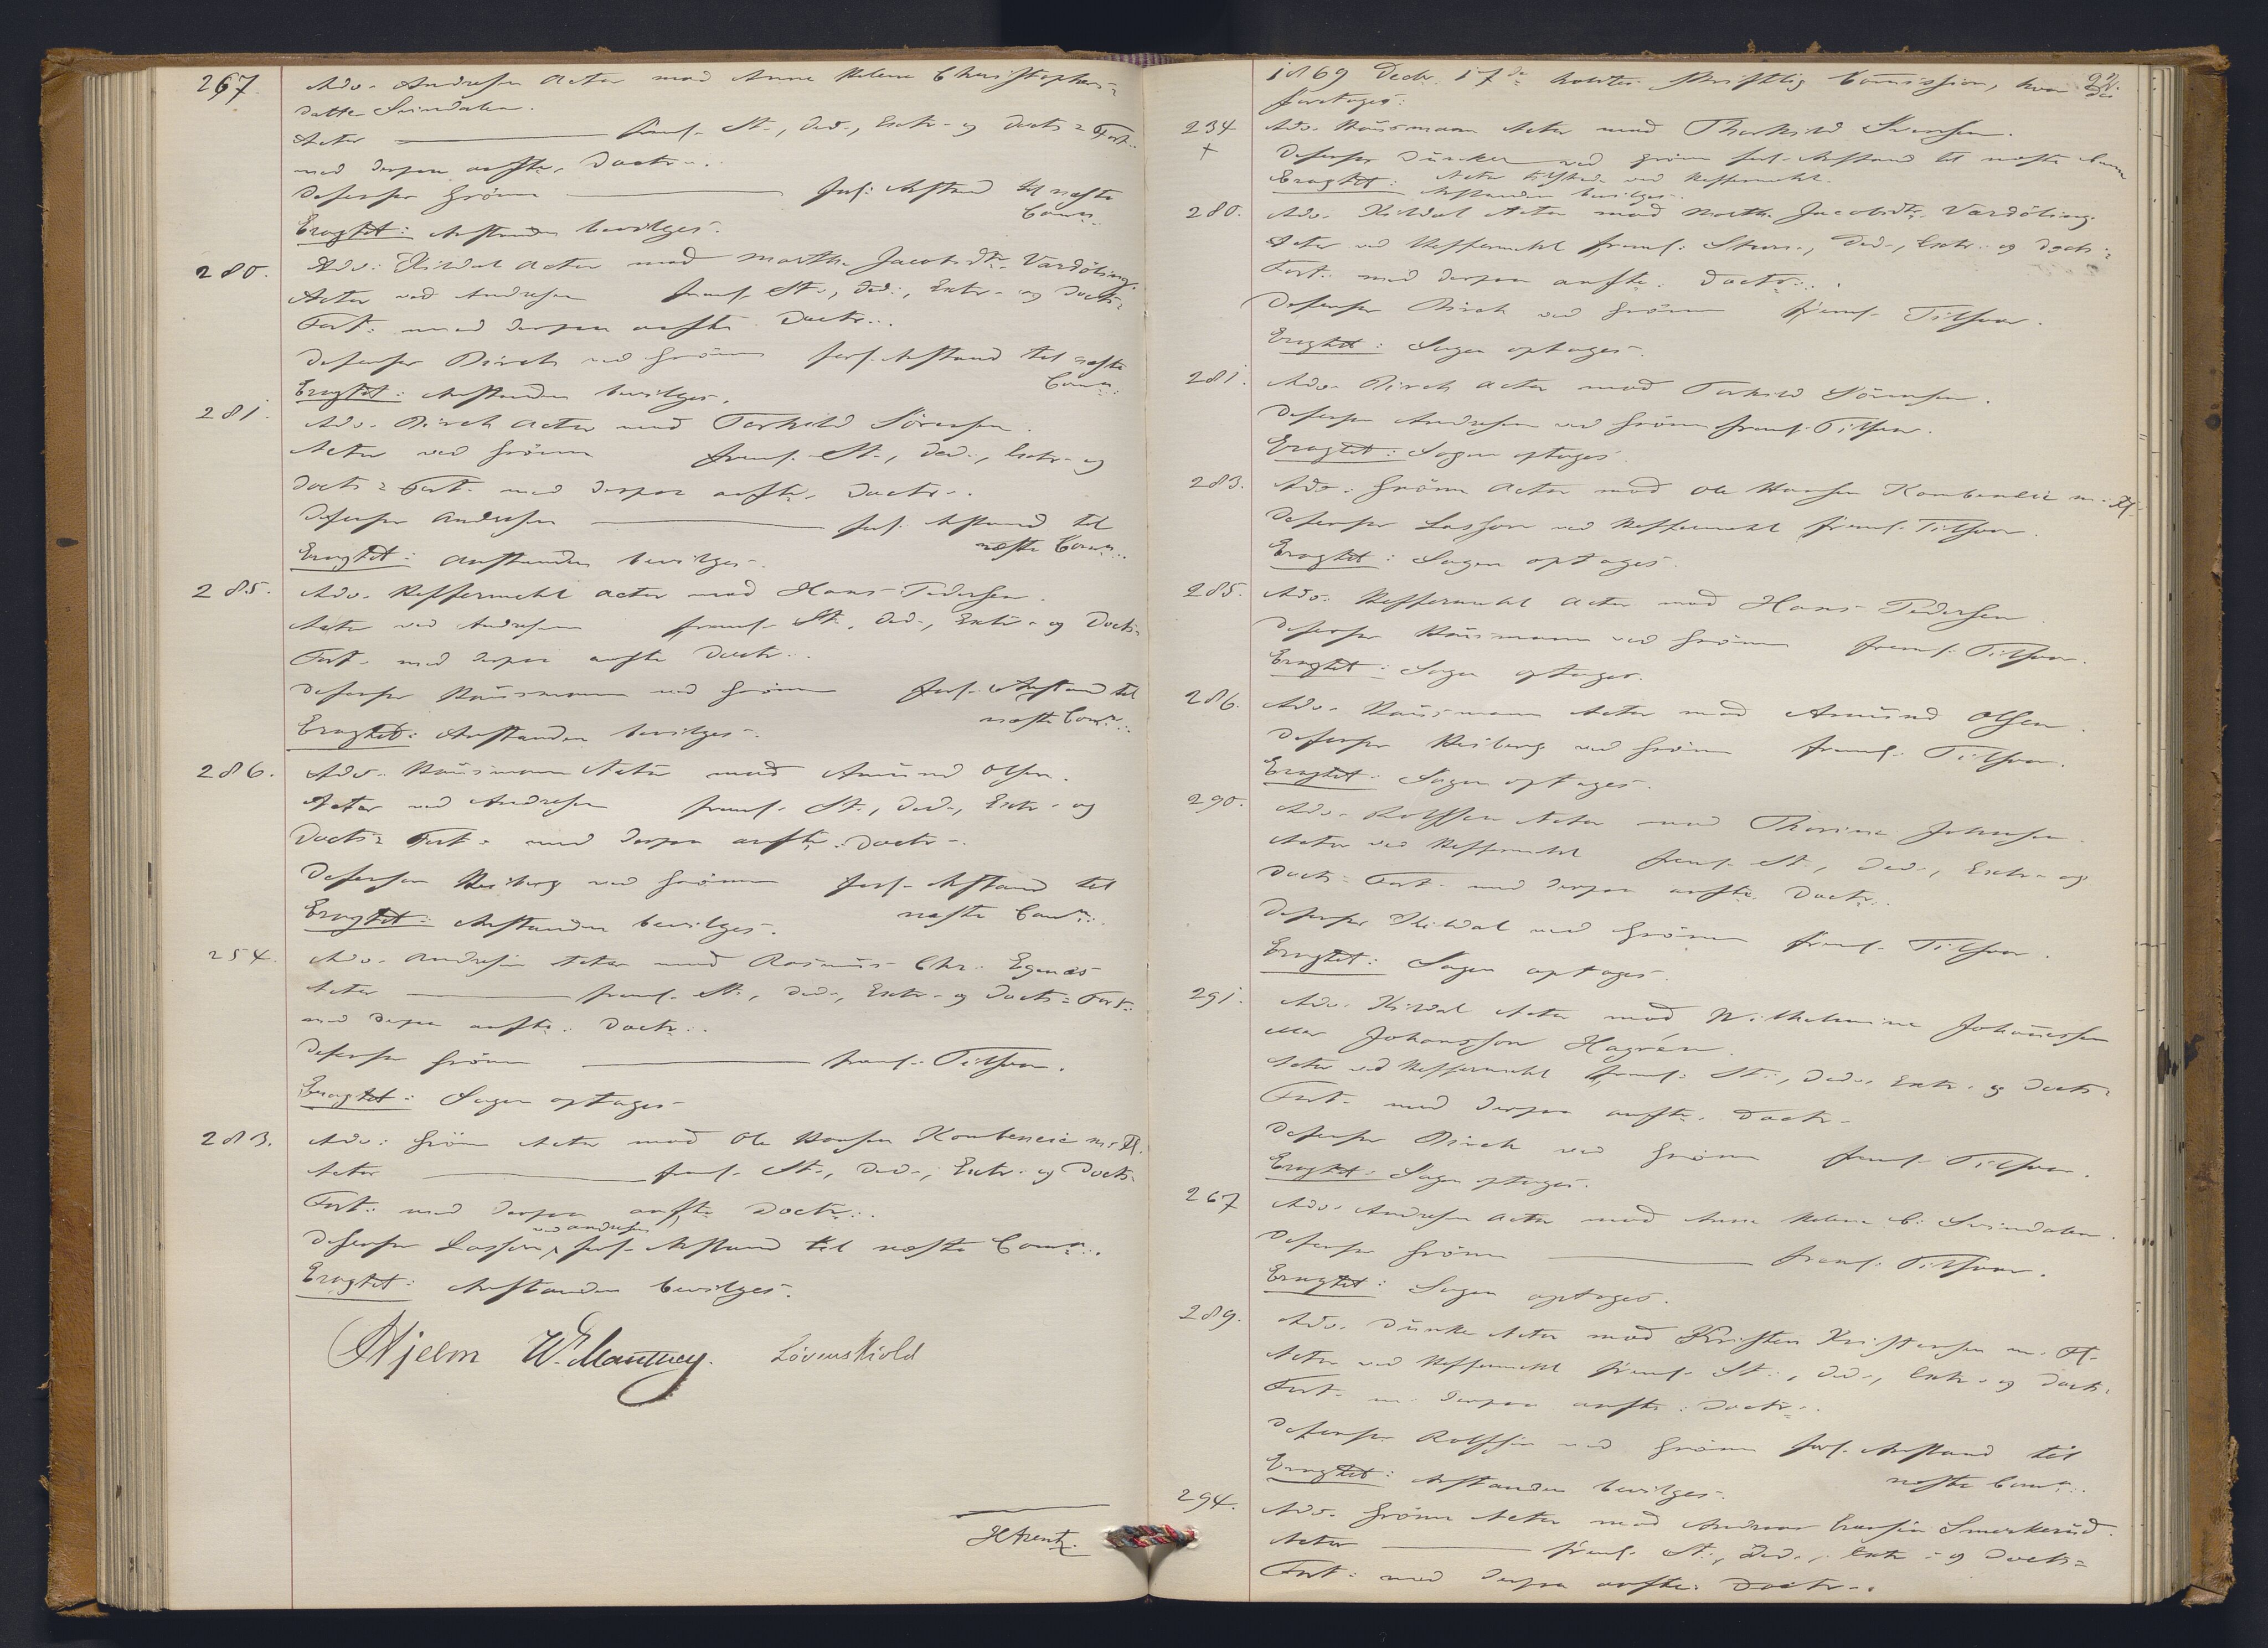 267. Adv. Andresen Actor mod Anne Helene Christophers-
datter Svindalen.
Actor ——— freml. St., Ded., Extr. og Docts= Fort.
med derpaa anfte. Doctr.
Defensor Grönn ——— forl. Anstand til næste
Comn.
Eragtet: Anstanden bevilges.
280. Adv. Kildal Actor mod Marthe Jacobsdtr. Vardöling.
Actor ved Andresen freml. St., Ded., Extr. og Docts=
Fort. med derpaa anfte. Doctr.
Defensor Birch ved Grönn forl. Anstand til næste
Comn.
Eragtet: Anstanden bevilges.
281. Adv. Birch Actor mod Torkild Sörensen.
Actor ved Grönn freml. St., Ded., Extr. og
Docts= Fort. med derpaa anfte. Doctr.
Defensor Andresen ——— forl. Anstand til
næste Comn.
Eragtet: Anstanden bevilges.
285. Adv. Heffermehl Actor mod Hans Pedersen.
Actor ved Andresen freml. St., Ded., Extr. og Docts=
Fort. med derpaa anfte. Doctr.
Defensor Hausmann ved Grönn forl. Anstand til
næste Comn.
Eragtet: Anstanden bevilges.
286. Adv. Hausmann Actor mod Amund Olsen.
Actor ved Andresen freml. St., Ded., Extr. og
Docts= Fort. med derpaa anfte. Doctr.
Defensor Heiberg ved Grönn forl. Anstand til
næste Comn.
Eragtet: Anstanden bevilges.
254. Adv. Andresen Actor mod Rasmus Chr. Egenæs
Actor ——— freml. St., Ded., Extr. og Docts= Fort.
med derpaa anfte. Doctr.
Defensor Grönn ——— freml. Tilsvar.
Eragtet: Sagen optages.
283. Adv. Grönn Actor mod Ole Hansen Kombeneie m. Fl.
Actor ——— freml. St., Ded., Extr. og Docts=
Fort. med derpaa anfte. Doctr.
ved Andresen
Defensor Lasson forl. Anstand til næste Comn.
Eragtet: Anstanden bevilges.
Hjelm W. E. Manthey. Lövenskiold
H Arentz.
1869 Decbr. 17de holdtes skriftlig Comission, hvor da
foretages:
234 Adv. Hausmann Actor mod Thorkild Svensen.
+
Defensor Duncker ved Grönn forl. Anstand til næste Comn
Actor tilstede ved Heffermehl.
Eragtet: Anstanden bevilges.
280. Adv. Kildal Actor mod Marthe Jacobsdtr. Vardöling.
Actor ved Heffermehl freml. Stevn., Ded., Extr. og Docts=
Fort. med derpaa anfte. Doctr.
Defensor Birch ved Grönn freml. Tilsvar.
Eragtet: Sagen optages.
281. Adv. Birch Actor mod Torkild Sörensen.
Defensor Andresen ved Grönn freml. Tilsvar.
Eragtet: Sagen optages.
283. Adv. Grönn Actor mod Ole Hansen Kombeneie m. Fl.
Defensor Lasson ved Heffermehl freml. Tilsvar.
Eragtet: Sagen optages.
285. Adv. Heffermehl Actor mod Hans Pedersen
Defensor Hausmann ved Grönn freml. Tilsvar.
Eragtet: Sagen optages.
286. Adv. Hausmann Actor mod Amund Olsen.
Defensor Heiberg ved Grönn freml. Tilsvar.
Eragtet: Sagen optages.
290. Adv. Rolfsen Actor mod Thorine Johnsen.
Actor ved Heffermehl freml. St., Ded., Extr. og
Docts= Fort. med derpaa anfte. Doctr.
Defensor Kildal ved Grönn freml. Tilsvar.
Eragtet: Sagen optages.
291. Adv. Kildal Actor mod Wilhelmine Johannessen
eller Johansson Hagrén.
Actor ved Heffermehl freml. St., Ded., Extr. og Docts=
Fort. med derpaa anfte. Doctr.
Defensor Birch ved Grönn freml. Tilsvar.
Eragtet: Sagen optages.
267 Adv. Andresen Actor mod Anne Helene C. Svindalen.
Defensor Grönn ——— freml. Tilsvar.
Eragtet: Sagen optages.
289. Adv. Dunker Actor mod Kristen Kristensen m. Fl.
Actor ved Heffermehl freml. St., Ded., Extr. og Docts=
Fort. m. derpaa anfte. Doctr.
Defensor Rolfsen ved Grönn forl. Anstand til
næste Comn.
Eragtet: Anstanden bevilges.
294. Adv. Grönn Actor mod Andreas Smerkerud.
Actor ——— freml. St., Ded., Extr. og Docts=
Fort. med derpaa anfte. Doctr.